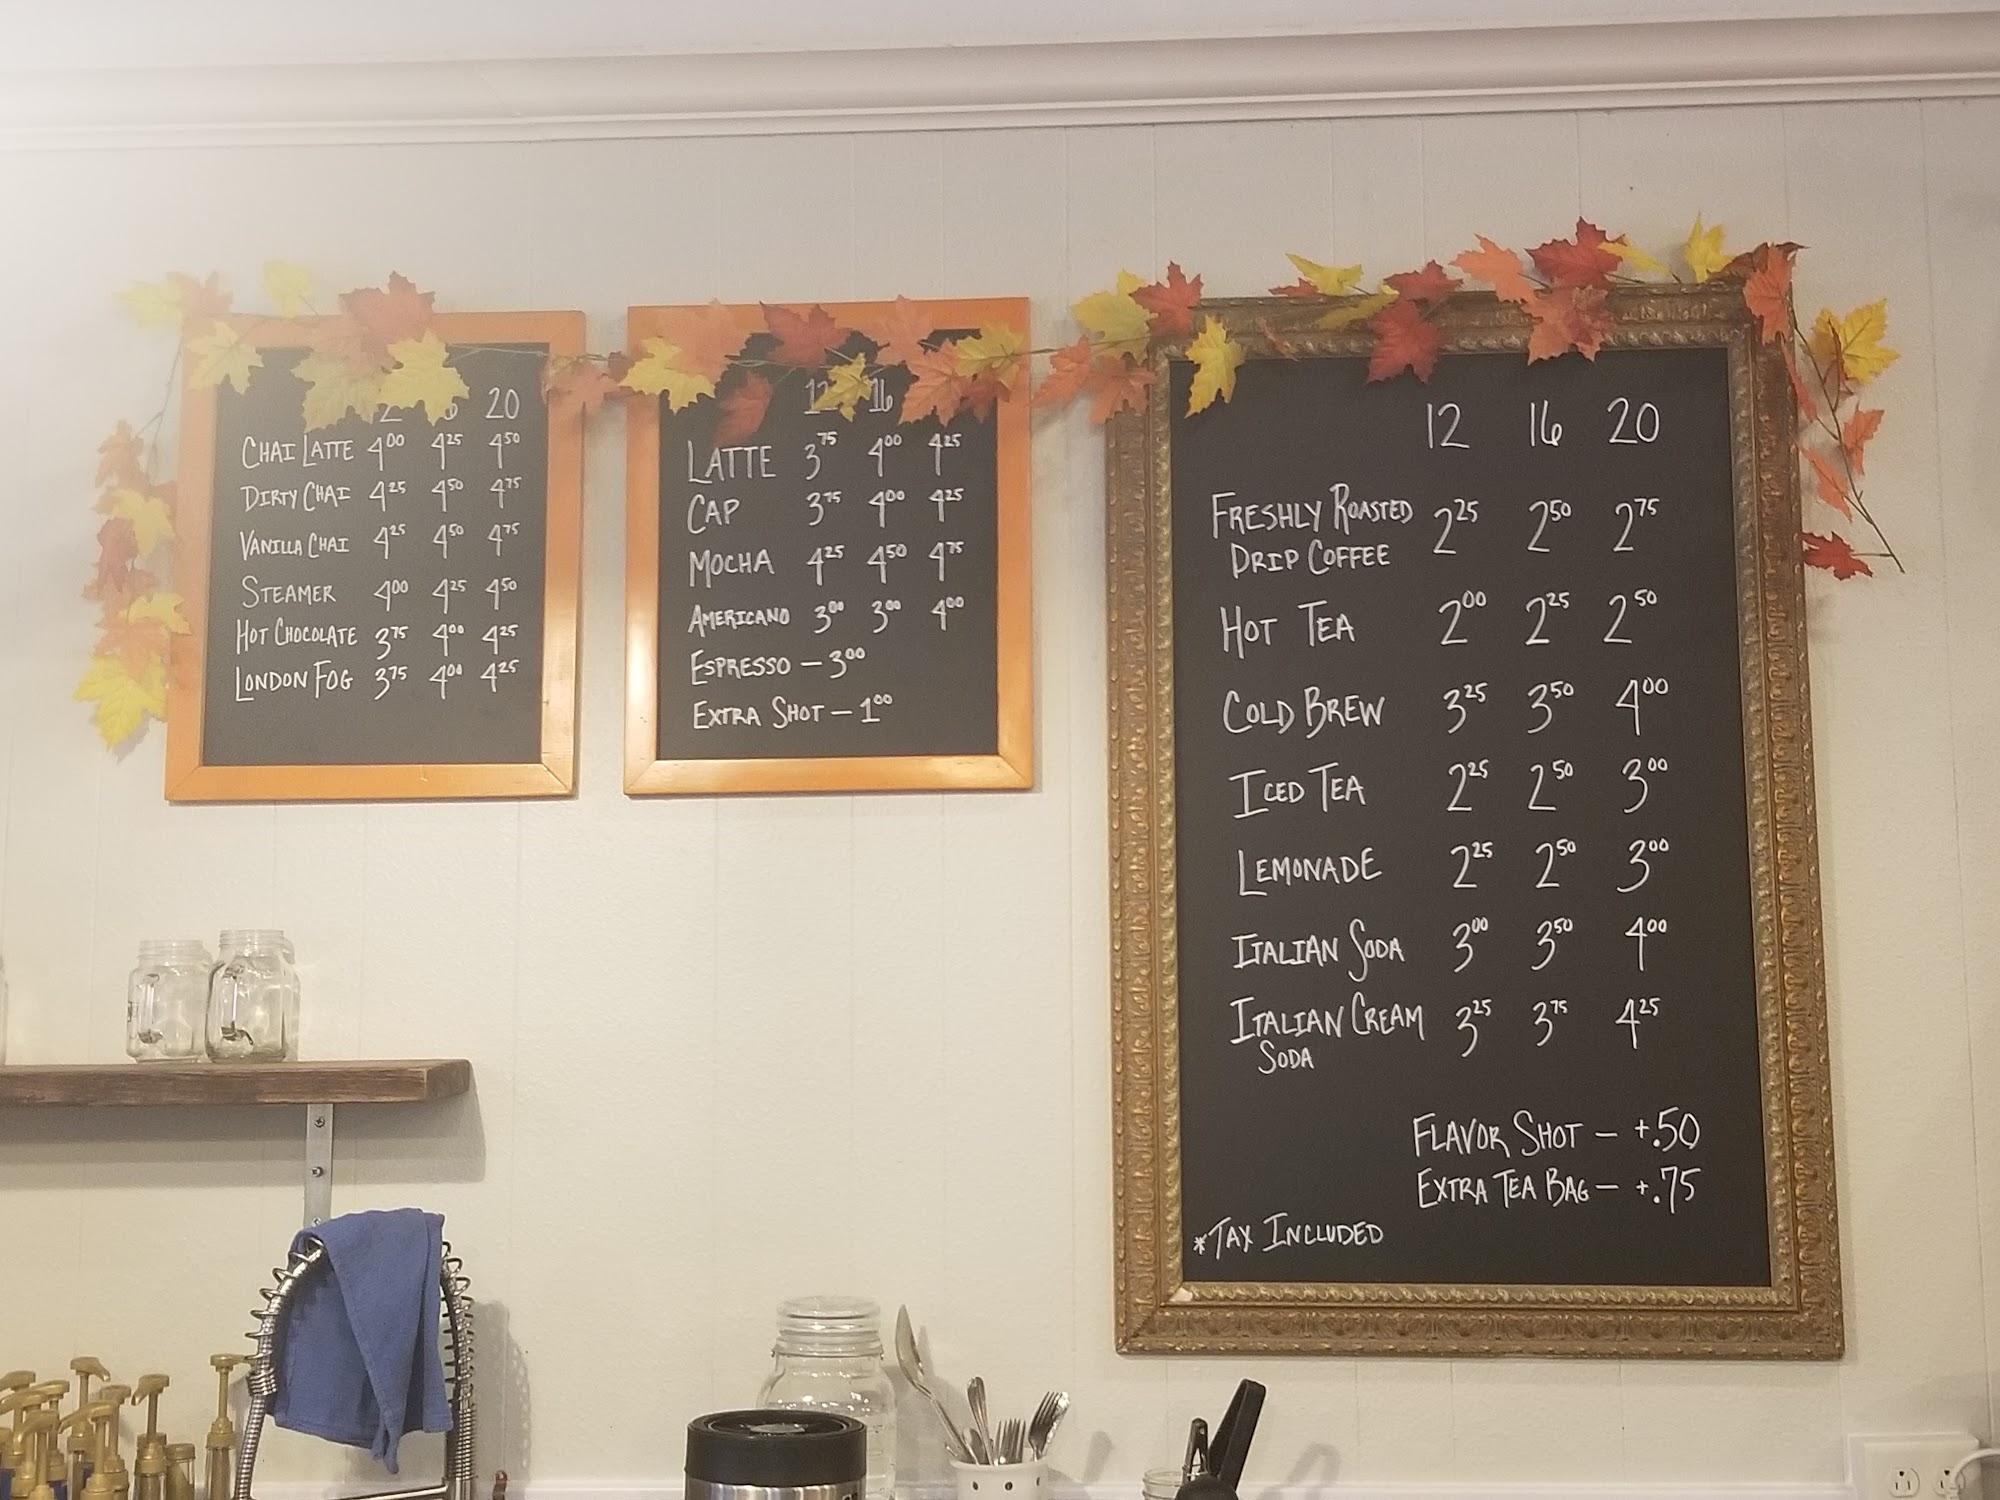 20
CHAI LATTE 4.00 4.25 4.50
DIRTY CHAI 4.25 4.50 4.75
VANILLA CHAI 4.25 4.50 4.75
STEAMER 4.00 4.25 4.50
HOT CHOCOLATE 3.75 4.00 4.25
LONDON FOG 3.75 4.00 4.25
12 16
LATTE 3.75 4.00 4.25
CAP 3.75 4.00 4.25
MOCHA 4.25 4.50 4.75
AMERICANO 3.00 3.00 4.00
ESPRESSO — 3.00
EXTRA SHOT — 1.00
12 16 20
FRESHLY ROASTED
DRIP COFFEE 2.25 2.50 2.75
HOT TEA 2.00 2.25 2.50
COLD BREW 3.25 3.50 4.00
ICED TEA 2.25 2.50 3.00
LEMONADE 2.25 2.50 3.00
ITALIAN SODA 3.00 3.50 4.00
ITALIAN CREAM 3.25 3.75 4.25
SODA
FLAVOR SHOT — +.50
EXTRA TEA BAG — +.75
*TAX INCLUDED